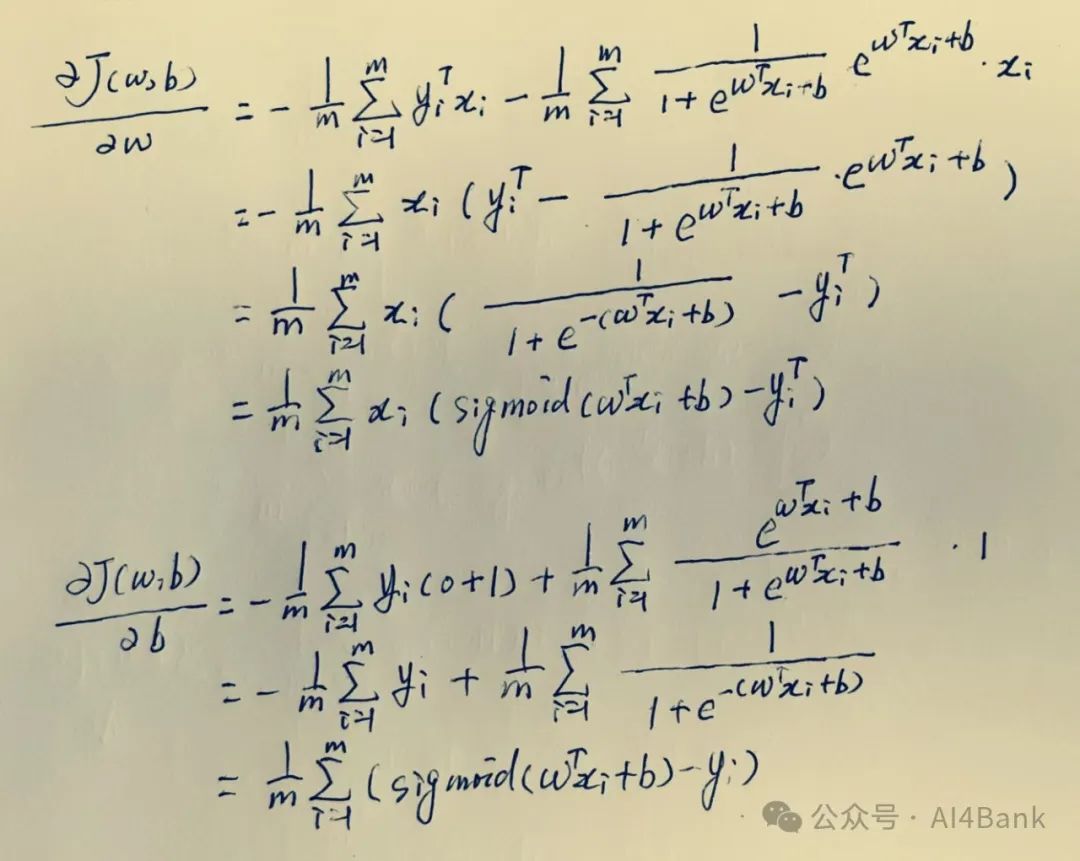 ∂J(w,b)/∂w = -1/m ∑_{i=1}^{m} y_i^T x_i - 1/m ∑_{i=1}^{m} 1/(1+e^{w^T x_i+b}) e^{w^T x_i+b} · x_i
= -1/m ∑_{i=1}^{m} x_i (y_i^T - 1/(1+e^{w^T x_i+b}) · e^{w^T x_i+b})
= 1/m ∑_{i=1}^{m} x_i (1/(1+e^{-(w^T x_i+b)}) - y_i^T)
= 1/m ∑_{i=1}^{m} x_i (sigmoid(w^T x_i+b) - y_i^T)
∂J(w,b)/∂b = -1/m ∑_{i=1}^{m} y_i(0+1) + 1/m ∑_{i=1}^{m} e^{w^T x_i+b}/(1+e^{w^T x_i+b}) · 1
= -1/m ∑_{i=1}^{m} y_i + 1/m ∑_{i=1}^{m} 1/(1+e^{-(w^T x_i+b)})
= 1/m ∑_{i=1}^{m} (sigmoid(w^T x_i+b) - y_i)
公众号 · AI4Bank